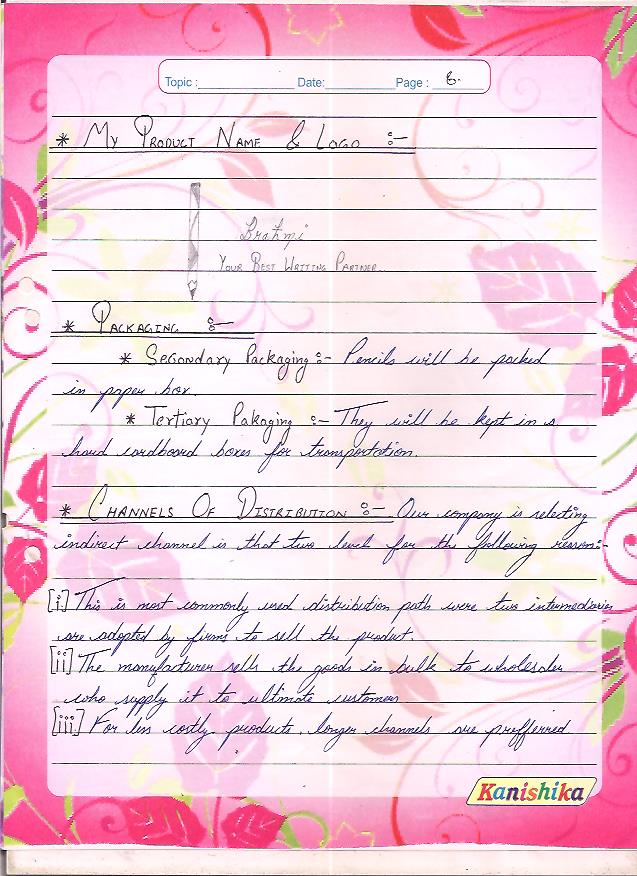 Topic : Date: Page : 6.
* My Product Name & Logo :-
Brahmi
Your Best Writing Partner
* Packaging :-
* Secondary Packaging :- Pencils will be packed
in paper box.
* Tertiary Pakaging :- They will be kept in a
hard cardboard boxes for transportation.
* Channels Of Distribution :- Our company is selecting
indirect channel is that two level for the following reason:-
[i] This is most commonly used distribution path were two intermediaries
are adopted by firms to sell the product.
[ii] The manufacturer sells the goods in bulk to wholesaler
who supply it to ultimate customers
[iii] For less costly products, longer channels are prefferred
Kanishika